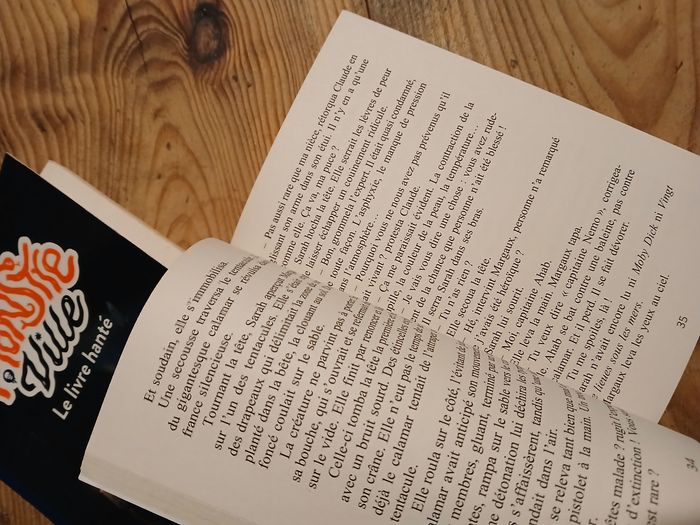 Ville
Le livre hanté
Et soudain, elle s'immobilisa
Une secousse traversa le
du gigantesque calamar se
france silencieuse.
Tournant la tête, Sarah
sur l'un des tentacules. Elle
des drapeaux qui délimitait la
planté dans la bête, la clouant au
foncé coulait sur le sable.
La créature ne parvint pas à
sa bouche, qui s'ouvrait et se
sur le vide. Elle finit par
Celle-ci tomba la tête la
avec un bruit sourd. Des
son crâne. Elle n'eut pas le temps de
déjà le calamar tentait de
tentacule.
Elle roula sur le côté,
calamar avait anticipé son
membres, gluant,
rampa sur le sable vers
une détonation lui déchira les
s'affaissèrent, tandis
dans l'air.
se releva tant bien que
pistolet à la main. Un
malade ?
d'extinction !
est rare ?
34
– Pas aussi rare que ma nièce, rétorqua Claude en
glissant son arme dans son étui. Il n'y en a qu'une
comme elle. Ça va, ma puce ?
Sarah hocha la tête. Elle serrait les lèvres de peur
laisser échapper un couinement ridicule.
– Bon, grommela l'expert. Il était quasi condamné,
de toute façon. L'asphyxie, le manque de pression
dans l'atmosphère…
– Pourquoi vous ne nous avez pas prévenus qu'il
vivant ? protesta Claude.
– Ça me paraissait évident. La contraction de la
la couleur de la peau, la température…
– Je vais vous dire une chose : vous avez
de la chance que personne n'ait été blessé !
serra Sarah dans ses bras.
– Tu n'as rien ?
Elle secoua la tête.
– Hé, intervint Margaux, personne n'a remarqué
j'avais été héroïque ?
Sarah lui sourit.
– Mon capitaine Ahab.
Elle leva la main. Margaux tapa.
– Tu veux dire « capitaine Nemo »,
Ahab se bat contre une baleine, pas contre
calamar. Et il perd. Il se fait dévorer.
– Tu me spoiles, là !
Sarah n'avait encore lu ni Moby Dick ni Vingt
lieues sous les mers.
Margaux leva les yeux au ciel.
35